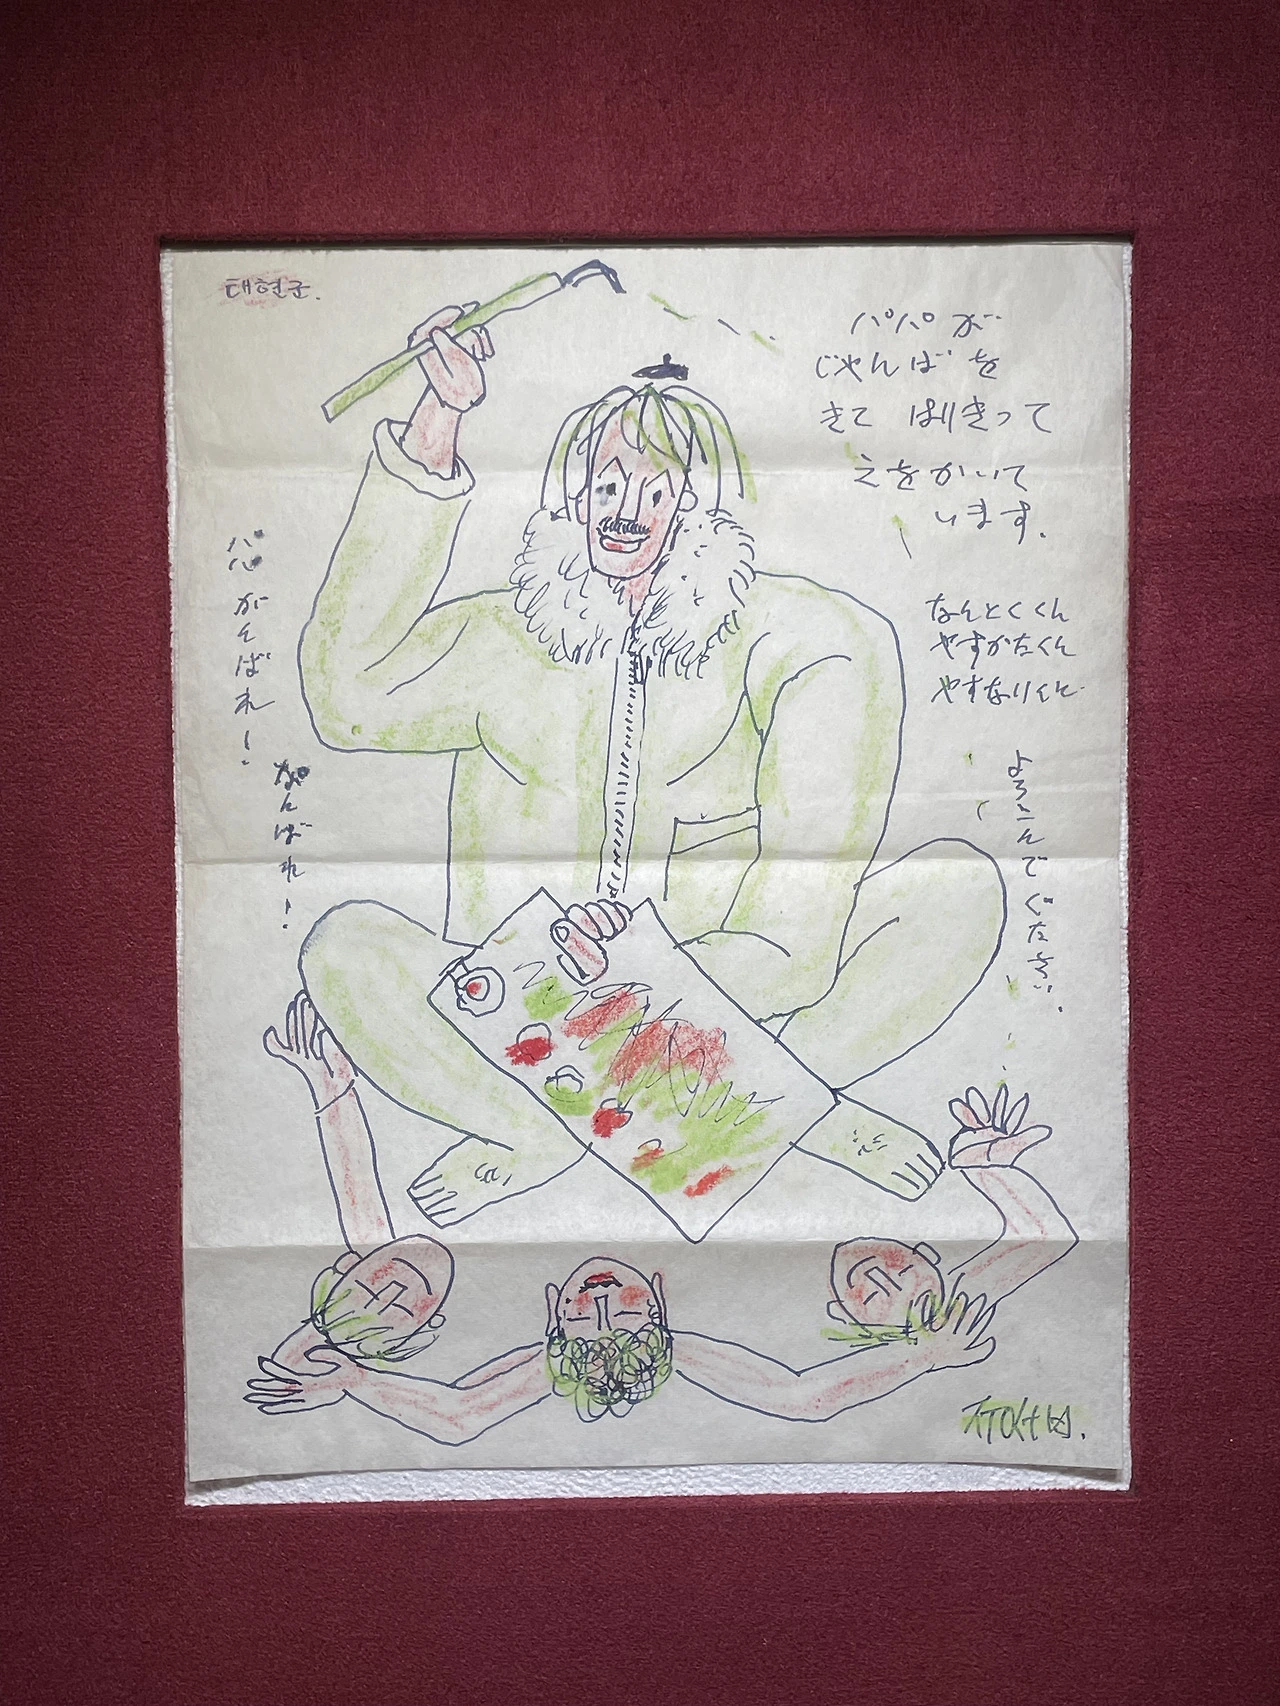 태현군.
パパが
じゃんばを
きて はりきって
えをかいて
います.
なんとくくん
やすかたくん
やすなりくん
よろこんでください.
パパがんばれ!
がんばれ!
ㅈㅜㅇㅅㅓㅂ.